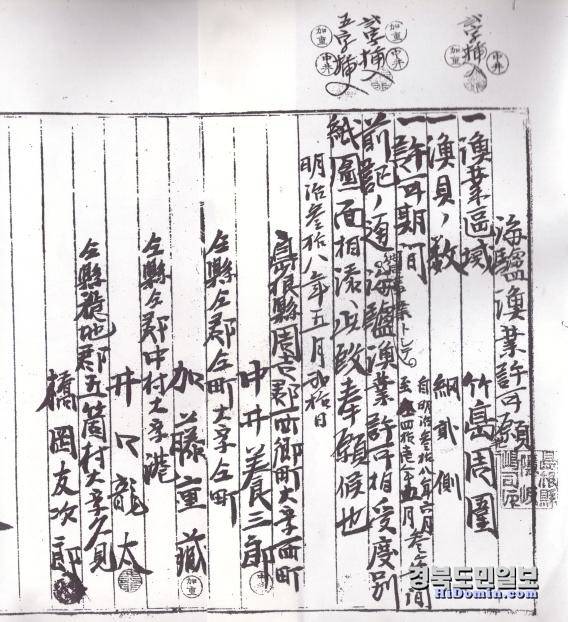 弐字挿入
弐字挿入
五字挿入
海驢漁業許可願
一漁業區域 竹島周圍
一漁具ノ数 網弐側
一許可期間 自明治参拾八年六月
至
前記ノ通海驢漁業許可相受度別
紙圖面相添此段奉願候也
明治参拾八年五月弐拾日
島根縣周吉郡西郷町大字西町
中井養三郎
仝縣仝郡仝町大字仝町
加藤重蔵
仝縣仝郡中村大字湊
井口龍太
仝縣穏地郡五箇村大字久見
橋岡友次郎
加重
中井
경북도민일보
HiDomin.com